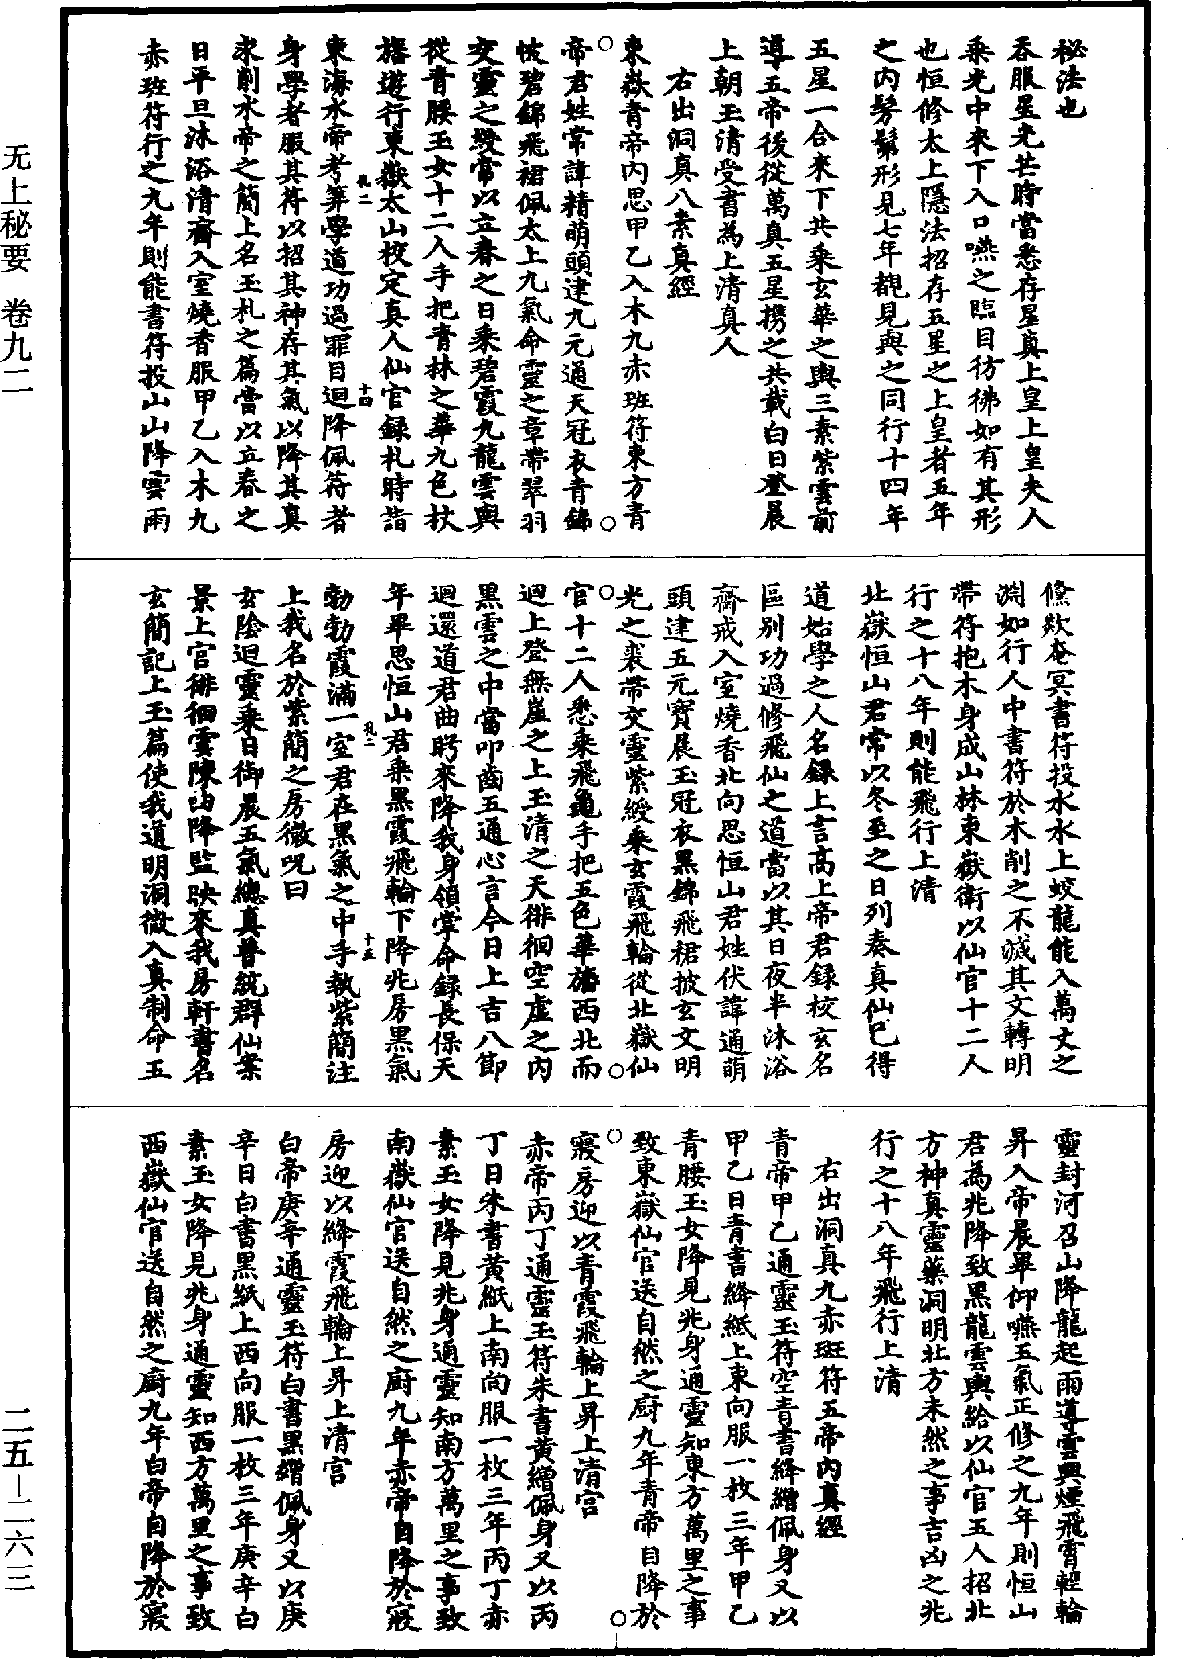 无上秘要 卷九二
二五—二六三
秘法也
吞服星光芒時當悉存星真上皇上皇夫人
乘光中來下入口嚥之臨目彷彿如有其形
也恒修太上隱法招存五星之上皇者五年
之內髣髴形見七年覩見與之同行十四年
五星一合來下共乘玄華之輿三素紫雲前
導五帝後從萬真五星携之共載白日登晨
上朝玉清受書為上清真人
右出洞真八素真經
東嶽青帝內思甲乙入木九赤班符東方青
帝君姓常諱精萌頭建九元通天冠衣青錦
帔碧錦飛裙佩太上九氣命靈之章帶翠羽
交靈之綬常以立春之日乘碧霞九龍雲輿
從青腰玉女十二人手把青林之華九色杖
旛遊行東嶽太山校定真人仙官録札時詣
東海水帝考筭學道功過罪目迴降佩符者
身學者服其符以招其神存其氣以降其真
求削水帝之簡上名玉札之篇當以立春之
日平旦沐浴清齋入室燒香服甲乙入木九
赤班符行之九年則能書符投山山降雲雨
儵欻奄冥書符投水水上蛟龍能入萬丈之
淵如行人中書符於木削之不滅其文轉明
帶符抱木身成山林東嶽衛以仙官十二人
行之十八年則能飛行上清
北嶽恒山君常以冬至之日列奏真仙已得
道始學之人名録上言高上帝君録校玄名
區別功過修飛仙之道當以其日夜半沐浴
齋戒入室燒香北向思恒山君姓伏諱通萌
頭建五元寶晨玉冠衣黑錦飛裙披玄文明
光之裘帶交靈紫綬乘玄霞飛輪從北嶽仙
官十二人悉乘飛龜手把五色華旛西北而
迴上登無崖之上玉清之天徘徊空虛之內
黑雲之中當叩齒五通心言今日上吉八節
迴還道君曲眄來降我身領掌命録長保天
年畢思恒山君乘黑霞飛輪下降兆房黑氣
勃勃霞滿一室君在黑氣之中手執紫簡注
上我名於紫簡之房微呪曰
玄陰迴靈乘日御晨五氣總真普統群仙案
景上官徘徊雲陳迅降監映來我房軒書名
玄簡記上玉篇使我道明洞微入真制命五
靈封河召山降龍起雨導雲興煙飛霄輕輪
昇入帝晨畢仰嚥五氣正修之九年則恒山
君為兆降致黑龍雲輿給以仙官五人招北
方神真靈藥洞明北方未然之事吉凶之兆
行之十八年飛行上清
右出洞真九赤斑符五帝內真經
青帝甲乙通靈玉符空青書絳繒佩身又以
甲乙日青書絳紙上東向服一枚三年甲乙
青腰玉女降見兆身通靈知東方萬里之事
致東嶽仙官送自然之厨九年青帝自降於
寢房迎以青霞飛輪上昇上清宮
赤帝丙丁通靈玉符朱書黄繒佩身又以丙
丁日朱書黄紙上南向服一枚三年丙丁赤
素玉女降見兆身通靈知南方萬里之事致
南嶽仙官送自然之厨九年赤帝自降於寢
房迎以絳霞飛輪上昇上清宮
白帝庚辛通靈玉符白書黑繒佩身又以庚
辛日白書黑紙上西向服一枚三年庚辛白
素玉女降見兆身通靈知西方萬里之事致
西嶽仙官送自然之厨九年白帝自降於寢